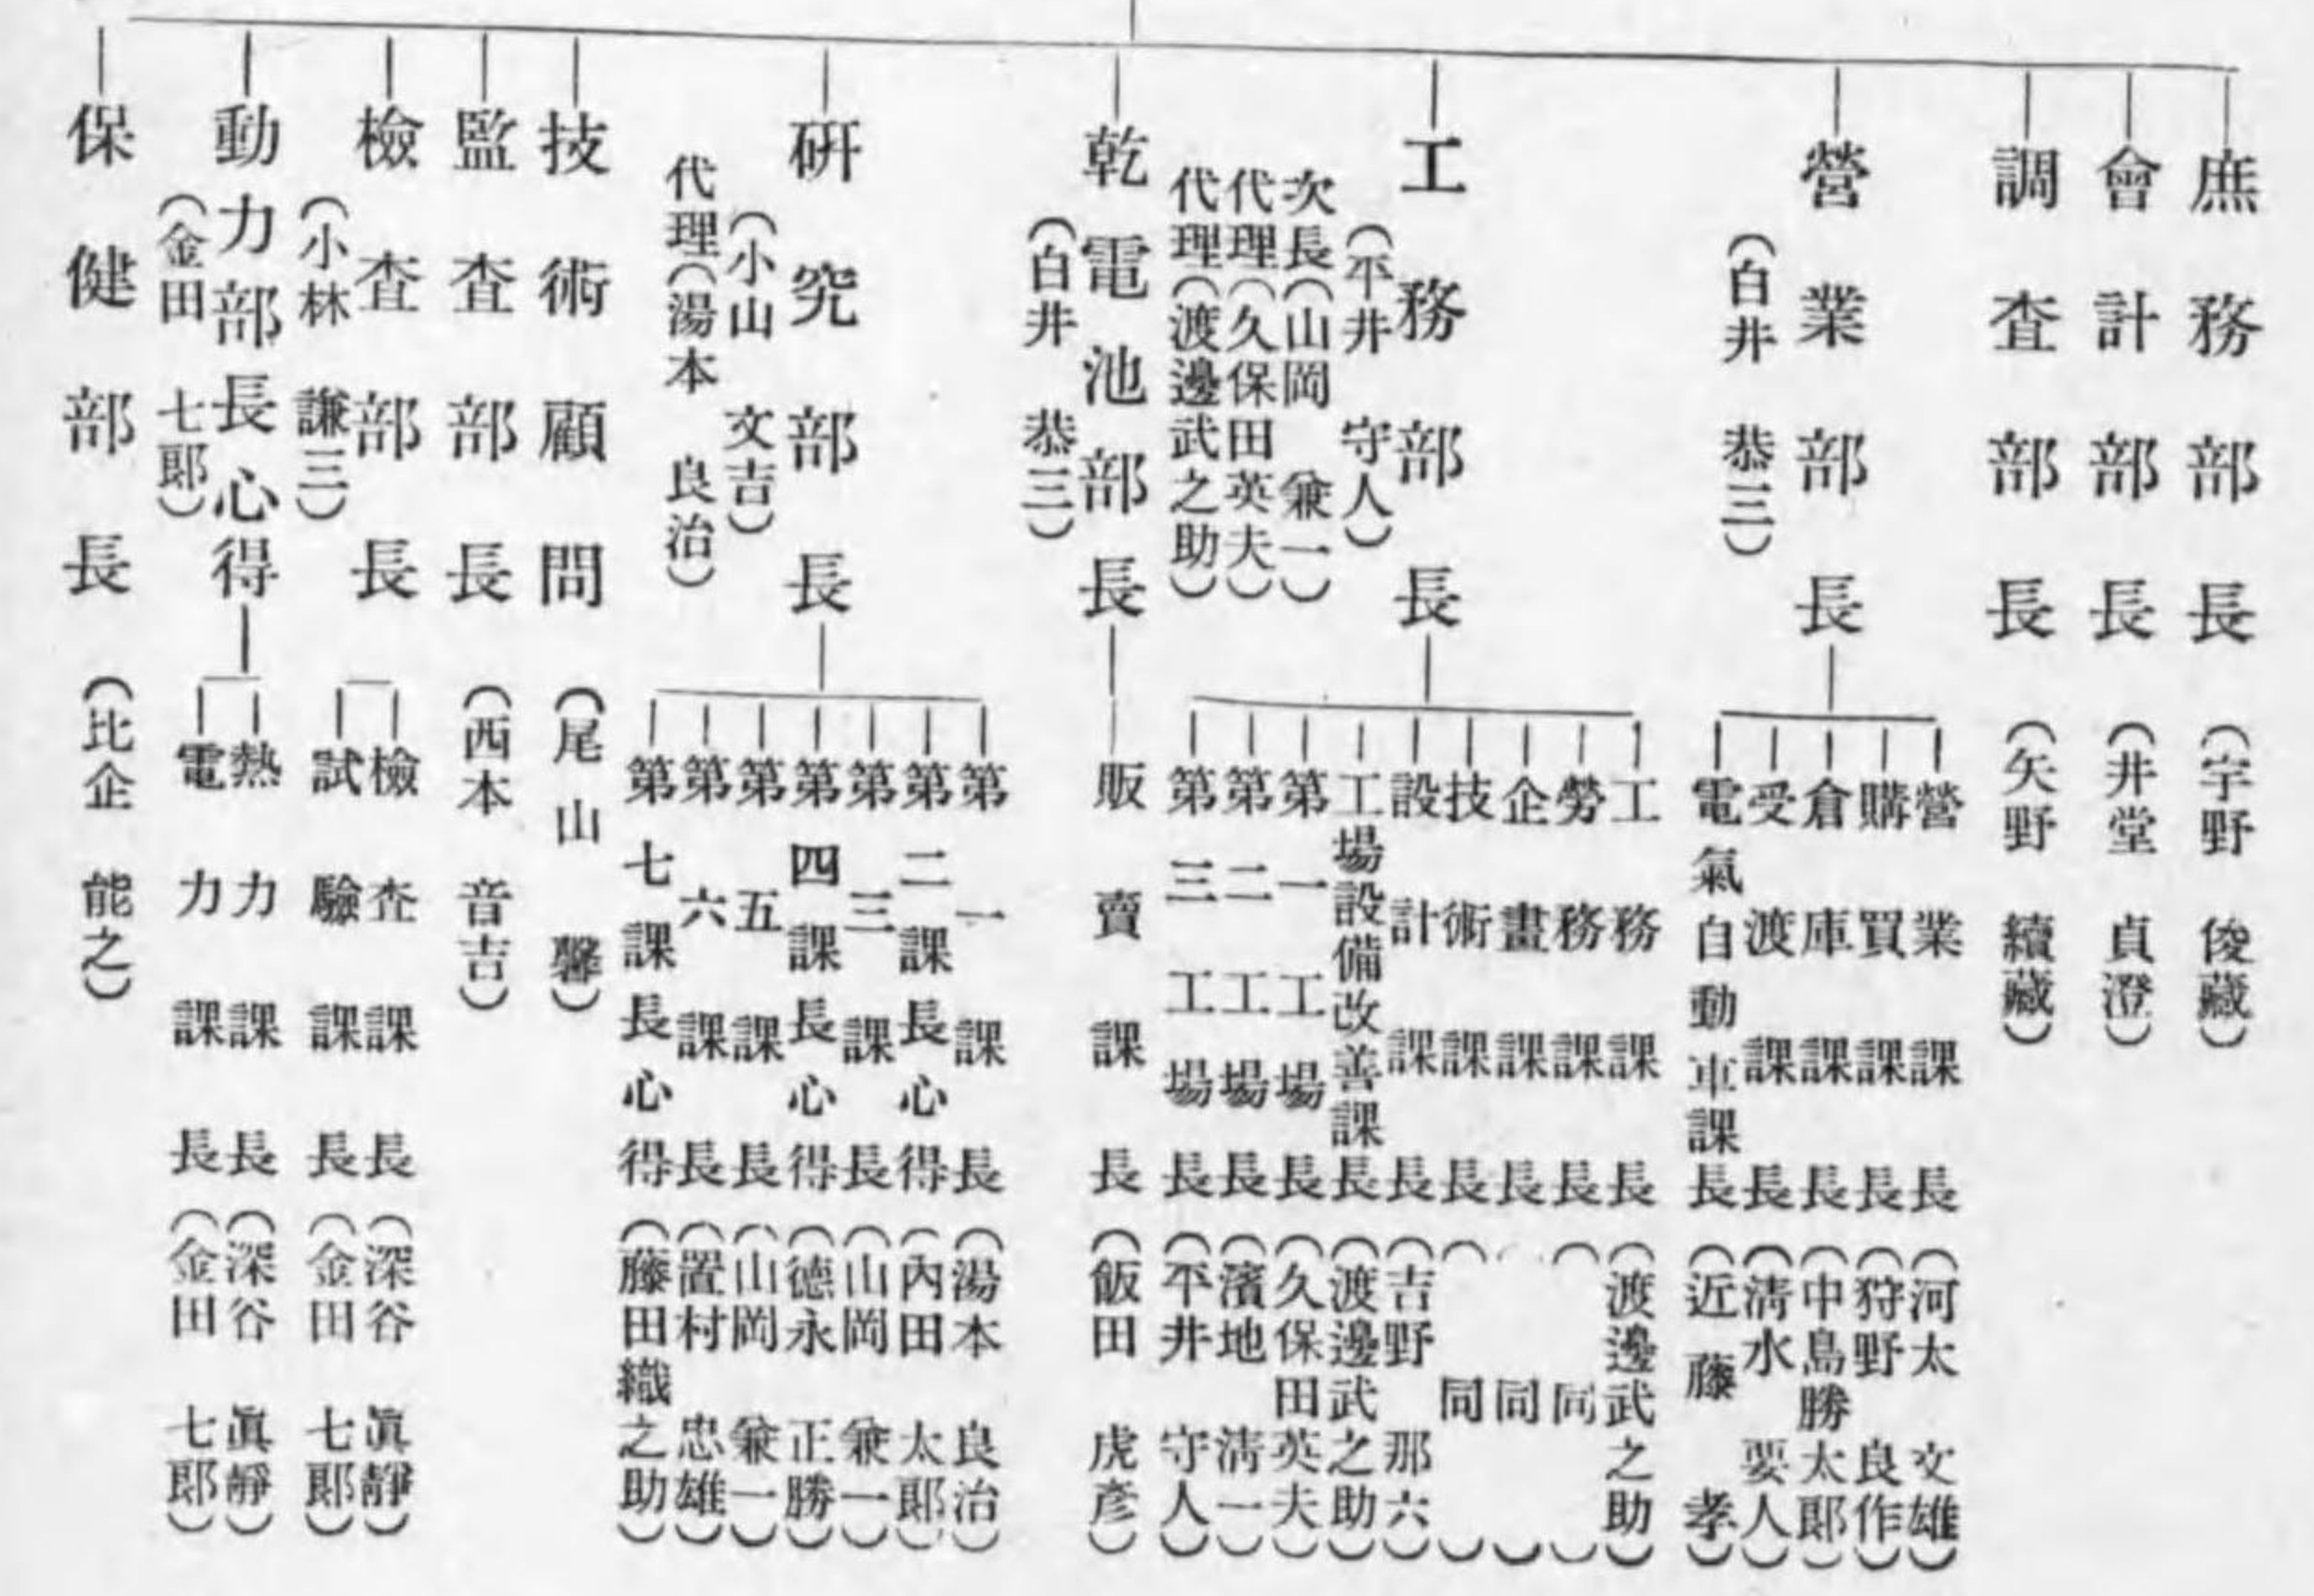 庶務部長(宇野 俊藏)
會計部長(井堂 貞澄)
調査部長(矢野 續藏)
營業部長
(白井 恭三)
營業課長(河太 文雄)
購買課長(狩野 良作)
倉庫課長(中島勝太郎)
受渡課長(淸水 要人)
電氣自動車課長(近藤 孝)
工務部長
(平井 守人)
次長(山岡 兼一)
代理(久保田英夫)
代理(渡邊武之助)
工務課長(渡邊武之助)
勞務課長(同)
企畫課長(同)
技術課長(同)
設計課長(吉野 那六)
工場設備改善課長(渡邊武之助)
第一工場長(久保田英夫)
第二工場長(濱地 淸一)
第三工場長(平井 守人)
乾電池部長
(白井 恭三)
販賣課長(飯田 虎彥)
硏究部長
(小山 文吉)
代理(湯本 良治)
第一課長(湯本 良治)
第二課長心得(內田 太郎)
第三課長(山岡 兼一)
第四課長心得(德永 正勝)
第五課長(山岡 兼一)
第六課長(置村 忠雄)
第七課長心得(藤田織之助)
技術顧問(尾山 馨)
監査部長(西本 音吉)
檢査部長
(小林 謙三)
檢査課長(深谷 眞靜)
試驗課長(金田 七郎)
動力部長心得
(金田 七郎)
熱力課長(深谷 眞靜)
電力課長(金田 七郎)
保健部長(比企 能之)